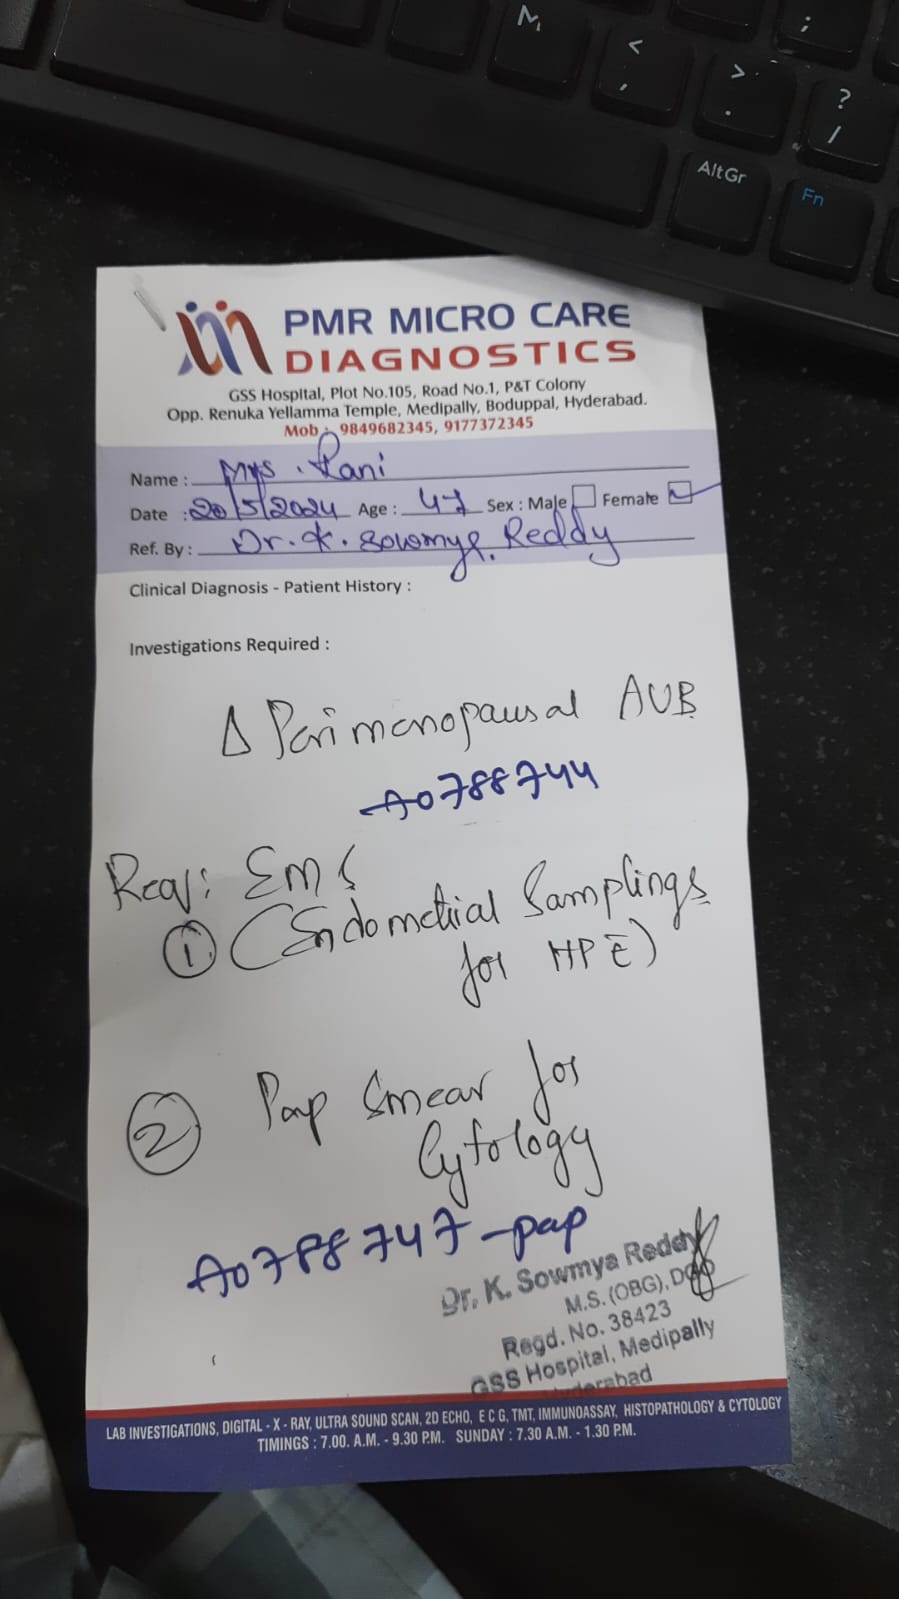 M,
< ,
> .
? /
;
AltGr
Fn
PMR MICRO CARE
DIAGNOSTICS
GSS Hospital, Plot No.105, Road No.1, P&T Colony
Opp. Renuka Yellamma Temple, Medipally, Boduppal, Hyderabad.
Mob : 9849682345, 9177372345
Name : Mrs. Rani
Date : 20/5/2024 Age : 47 Sex : Male Female
Ref. By : Dr. K. Sowmya Reddy
Clinical Diagnosis - Patient History :
Investigations Required :
Δ Perimenopausal AUB
A0788744
Req: EMS
1 (Endometrial Samplings
for HPE)
2 Pap Smear for
Cytology
A0788747-pap
Dr. K. Sowmya Reddy
M.S. (OBG), DGO
Regd. No. 38423
GSS Hospital, Medipally
Hyderabad
LAB INVESTIGATIONS, DIGITAL - X - RAY, ULTRA SOUND SCAN, 2D ECHO, E C G, TMT, IMMUNOASSAY, HISTOPATHOLOGY & CYTOLOGY
TIMINGS : 7.00. A.M. - 9.30 P.M. SUNDAY : 7.30 A.M. - 1.30 P.M.